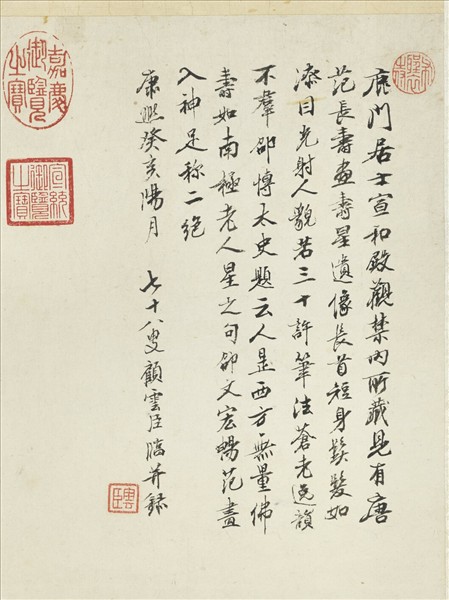 鹿門居士宣和殿觀禁內所藏見有唐
范長壽畫壽星遺像長首短身鬚髮如
漆目光射人貌若三十許筆法蒼老逸韻
不羣邵博太史題云人是西方無量佛
壽如南極老人星之句邵文宏暢范畫
入神足称二絶
康熙癸亥陽月 七十八叟顧雲臣臨并錄
雲臣
嘉慶御覽之寶
宣統御覽之寶